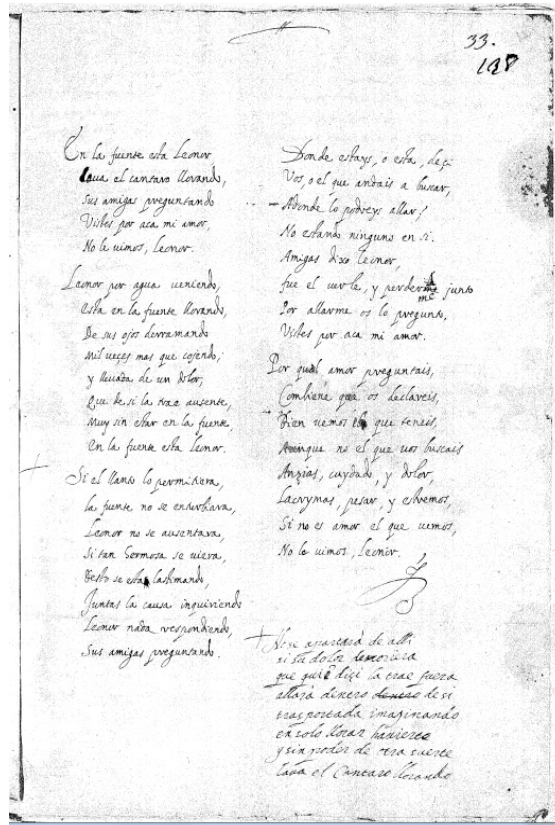 33.
198
En la fuente esta Leonor,
Laua el cantaro llorando,
Sus amigas preguntando
Vistes por aca mi amor,
No le uimos, Leonor.
Leonor por agua ueniendo,
Esta en la fuente llorando,
De sus ojos derramando
Mil veçes mas que cojendo,
y lleuada de un dolor,
Que de si la trae ausente,
Muy sin estar en la fuente
En la fuente esta Leonor.
Si el llanto lo permitiera,
la fuente no se enturbiara,
Leonor no se ausentara,
Si tan hermosa se uiera,
Desto se estan lastimando,
Juntas la causa inquiriendo
Leonor nada respondiendo,
Sus amigas preguntando.
Donde estays, o esta, deçi
Vos, o el que andais a buscar,
Adonde lo podreys allar?
No estando ninguno en si.
Amigas dixo Leonor,
fue el verle, y perderme junto
me
Por allarme os lo pregunto,
Vistes por aca mi amor.
Por qual amor preguntais,
Combiene que os declareis,
Bien uemos el que teneis,
Aunque no el que uos buscais
Anzias, cuydado, y dolor,
Lacrymas, pesar, y estremos,
Si no es amor el que uemos,
No le uimos, Leonor.
No se apartara de alli
si su dolor
que quiē diçi la trae fuera
allara dentro dentro de si
trasportada imaginando
en solo llorar
y sin poder de otra suerte
laua el Cantaro llorando